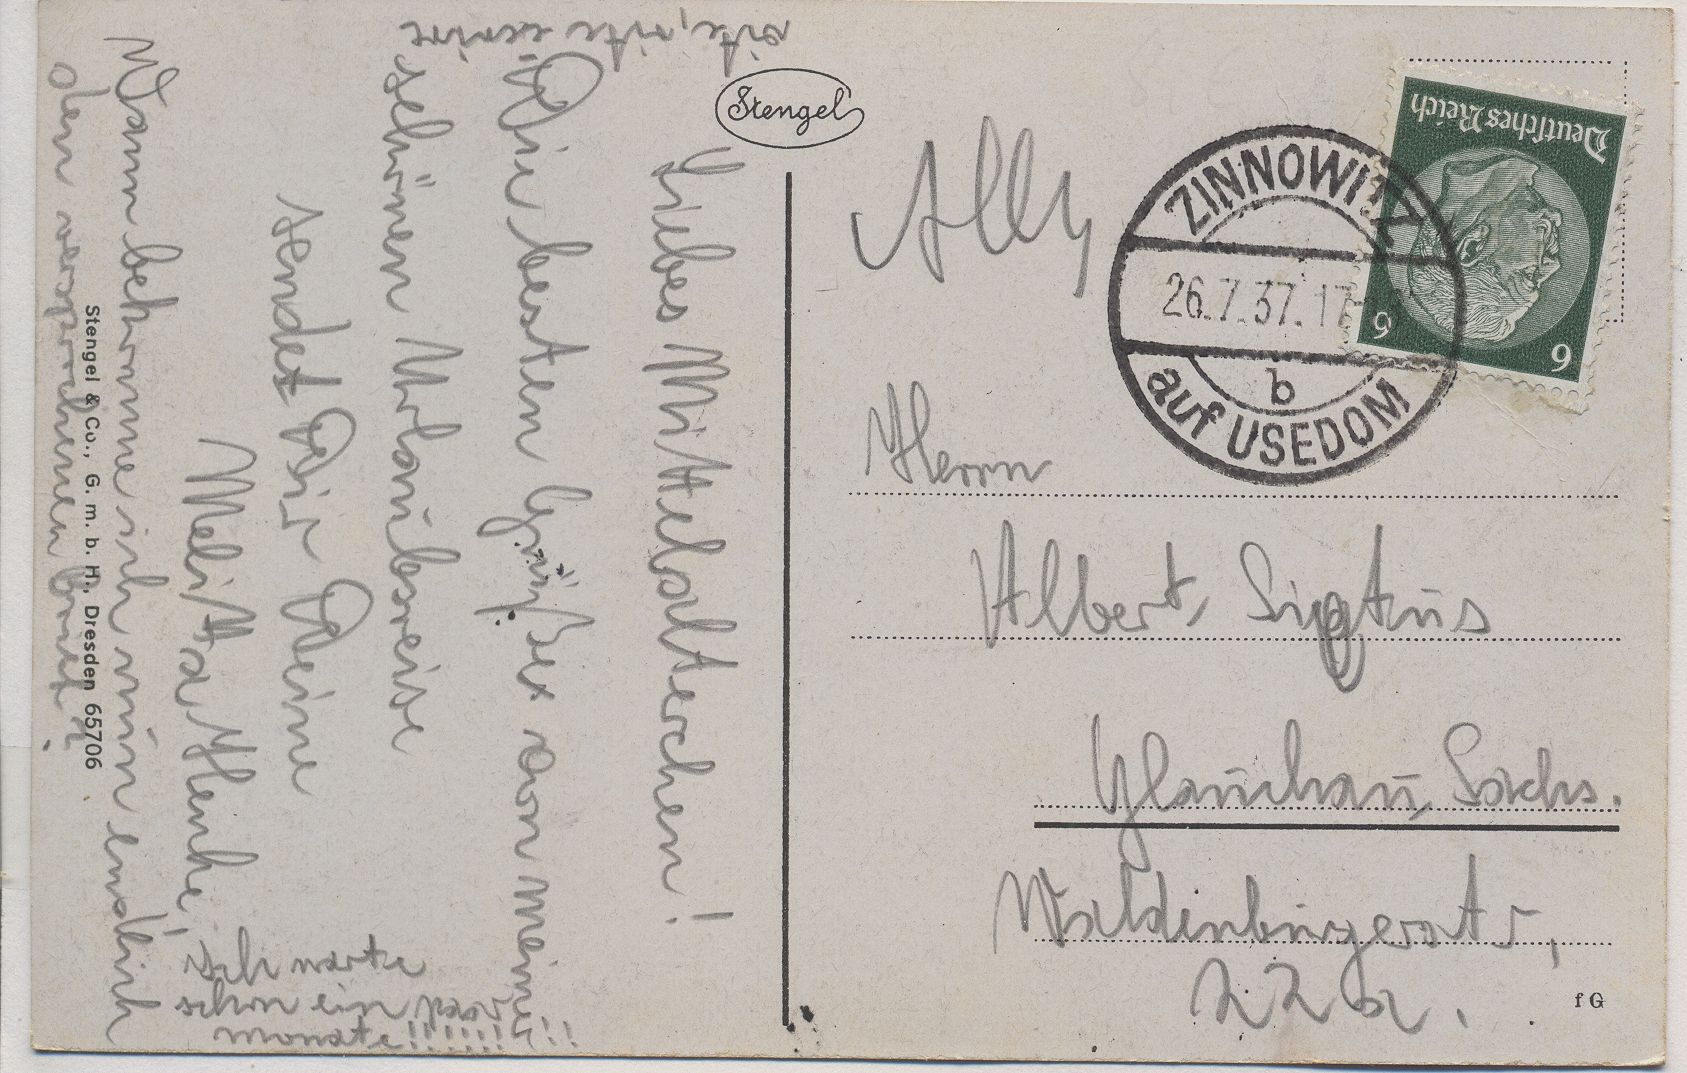 Stengel
Liebes Mittelalterchen!
Die besten Grüße von meiner
schönen Urlaubsreise
sendet Dir Deine
Melitta Henke.
Wann bekomme ich nun endlich
den versprochenen Brief?
Ich warte
schon ein paar
Monate!!!!!!!!!
vite, vite écrire
Stengel & Co., G. m. b. H., Dresden 65706
Ally
ZINNOWITZ
26.7.37.17-
b
auf USEDOM
Deutsches Reich
6 6
Herrn
Albert
Glauchau, Sachs.
Waldenburgerstr,
22a.
f G